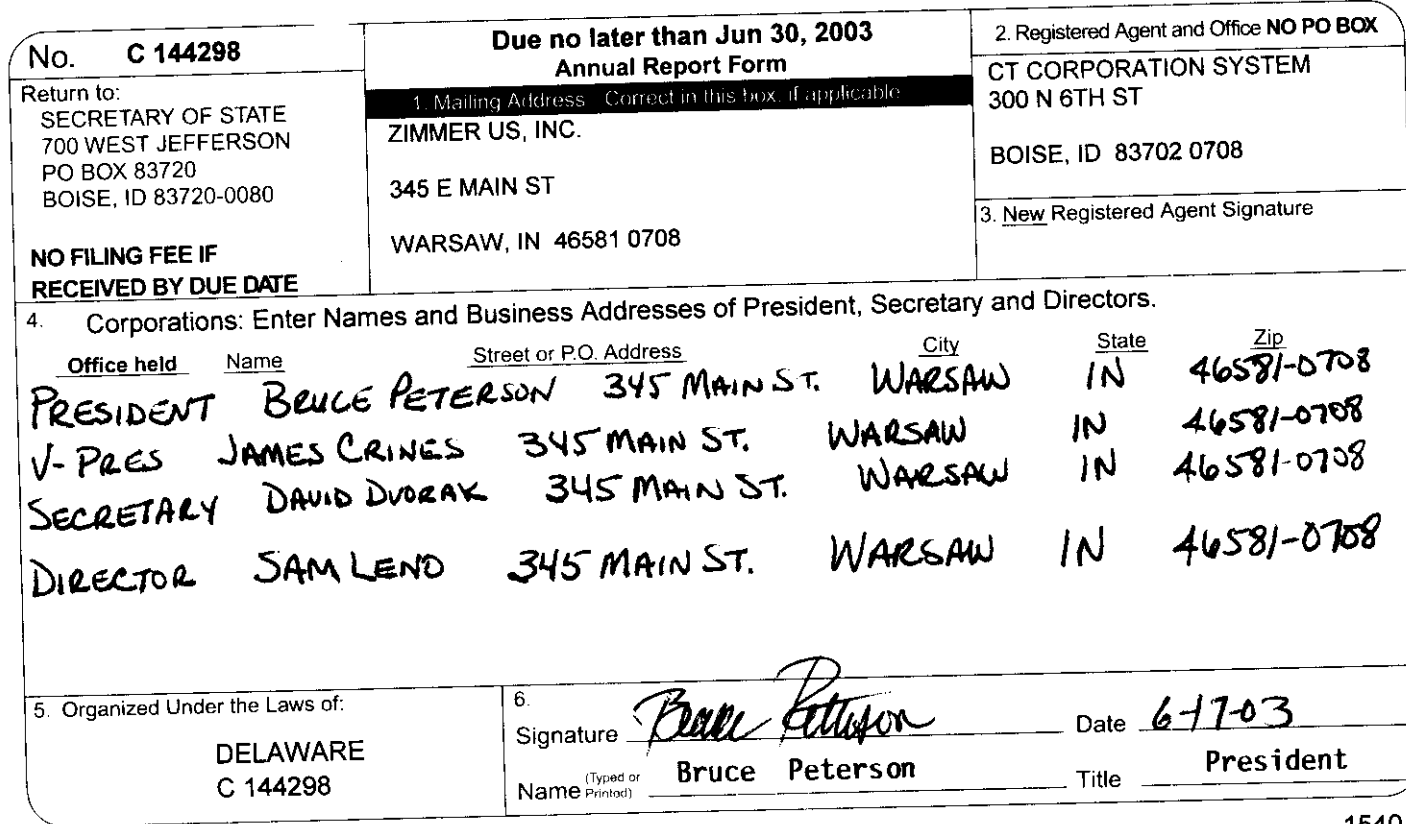 No. C 144298
Return to:
SECRETARY OF STATE
700 WEST JEFFERSON
PO BOX 83720
BOISE, ID 83720-0080
NO FILING FEE IF
RECEIVED BY DUE DATE
Due no later than Jun 30, 2003
Annual Report Form
1. Mailing Address Correct in this box, if applicable
ZIMMER US, INC.
345 E MAIN ST
WARSAW, IN 46581 0708
2. Registered Agent and Office NO PO BOX
CT CORPORATION SYSTEM
300 N 6TH ST
BOISE, ID 83702 0708
3. New Registered Agent Signature
4. Corporations: Enter Names and Business Addresses of President, Secretary and Directors.
Office held Name Street or P.O. Address City State Zip
PRESIDENT BRUCE PETERSON 345 MAIN ST. WARSAW IN 46581-0708
V-PRES JAMES CRINES 345 MAIN ST. WARSAW IN 46581-0708
SECRETARY DAVID DVORAK 345 MAIN ST. WARSAW IN 46581-0708
DIRECTOR SAM LENO 345 MAIN ST. WARSAW IN 46581-0708
5. Organized Under the Laws of:
DELAWARE
C 144298
6.
Signature Bruce Peterson Date 6-17-03
Name (Typed or Printed) Bruce Peterson Title President
1540